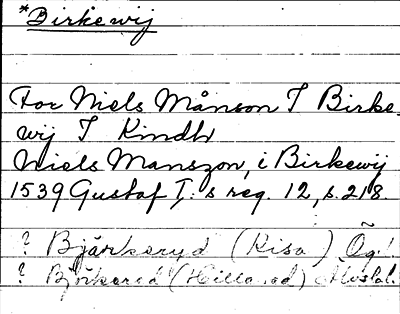 *Birkewij
For Niels Månson I Birke
wij I Kindh
Niels Manszon, i Birkewij
1539 Gustaf I:s reg. 12, s. 218.
? Bjärkeryd (Kisa) Ög!
? Björkered (Hillared)